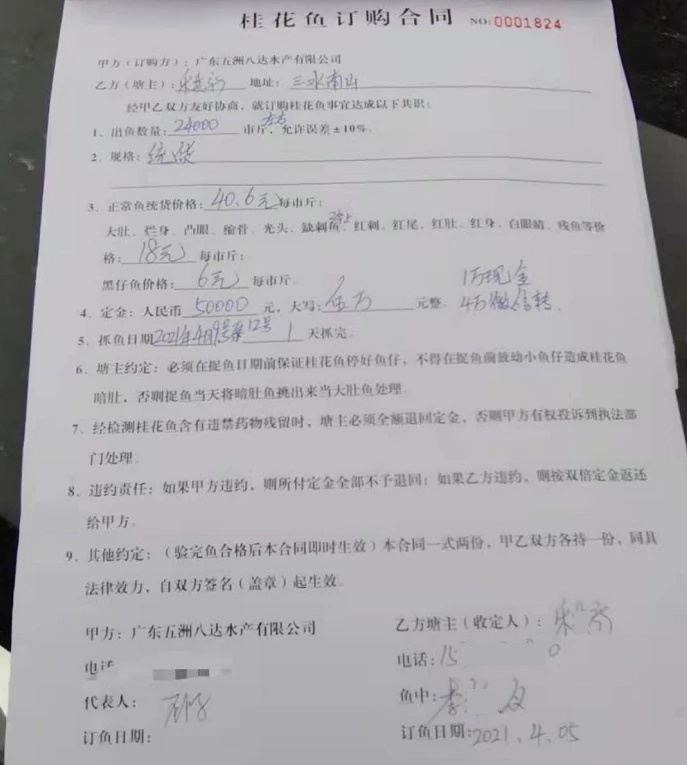 桂花鱼订购合同 NO:0001824
甲方（订购方）：广东五洲八达水产有限公司
乙方（塘主）： 地址：三水南山
经甲乙双方友好协商，就订购桂花鱼事宜达成以下共识：
1、出鱼数量：24000 市斤，允许误差±10%。
2、规格：统货
3、正常鱼统货价格：40.6元 每市斤；
大肚、烂身、凸眼、缩骨、光头、缺刺鱼、红刺、红尾、红肚、红身、白眼睛、残鱼等价
格：18元 每市斤；
黑仔鱼价格：6元 每市斤。
1万现金
4、定金：人民币 50000 元，大写：伍万 元整 4万微信转
5、抓鱼日期2021年4月9号至12号 1 天抓完。
6、塘主约定：必须在捉鱼日期前保证桂花鱼停好鱼仔，不得在捉鱼前放动小鱼仔造成桂花鱼
暗肚，否则捉鱼当天将暗肚鱼挑出来当大肚鱼处理。
7、经检测桂花鱼含有违禁药物残留时，塘主必须全额退回定金，否则甲方有权投诉到执法部
门处理。
8、违约责任：如果甲方违约，则所付定金全部不予退回；如果乙方违约，则按双倍定金返还
给甲方。
9、其他约定：（验完鱼合格后本合同即时生效）本合同一式两份，甲乙双方各持一份，同具
法律效力，自双方签名（盖章）起生效。
甲方：广东五洲八达水产有限公司
乙方塘主（收定人）：
电话：15 0
代表人：
鱼中：李
订鱼日期：
订鱼日期：2021.4.05